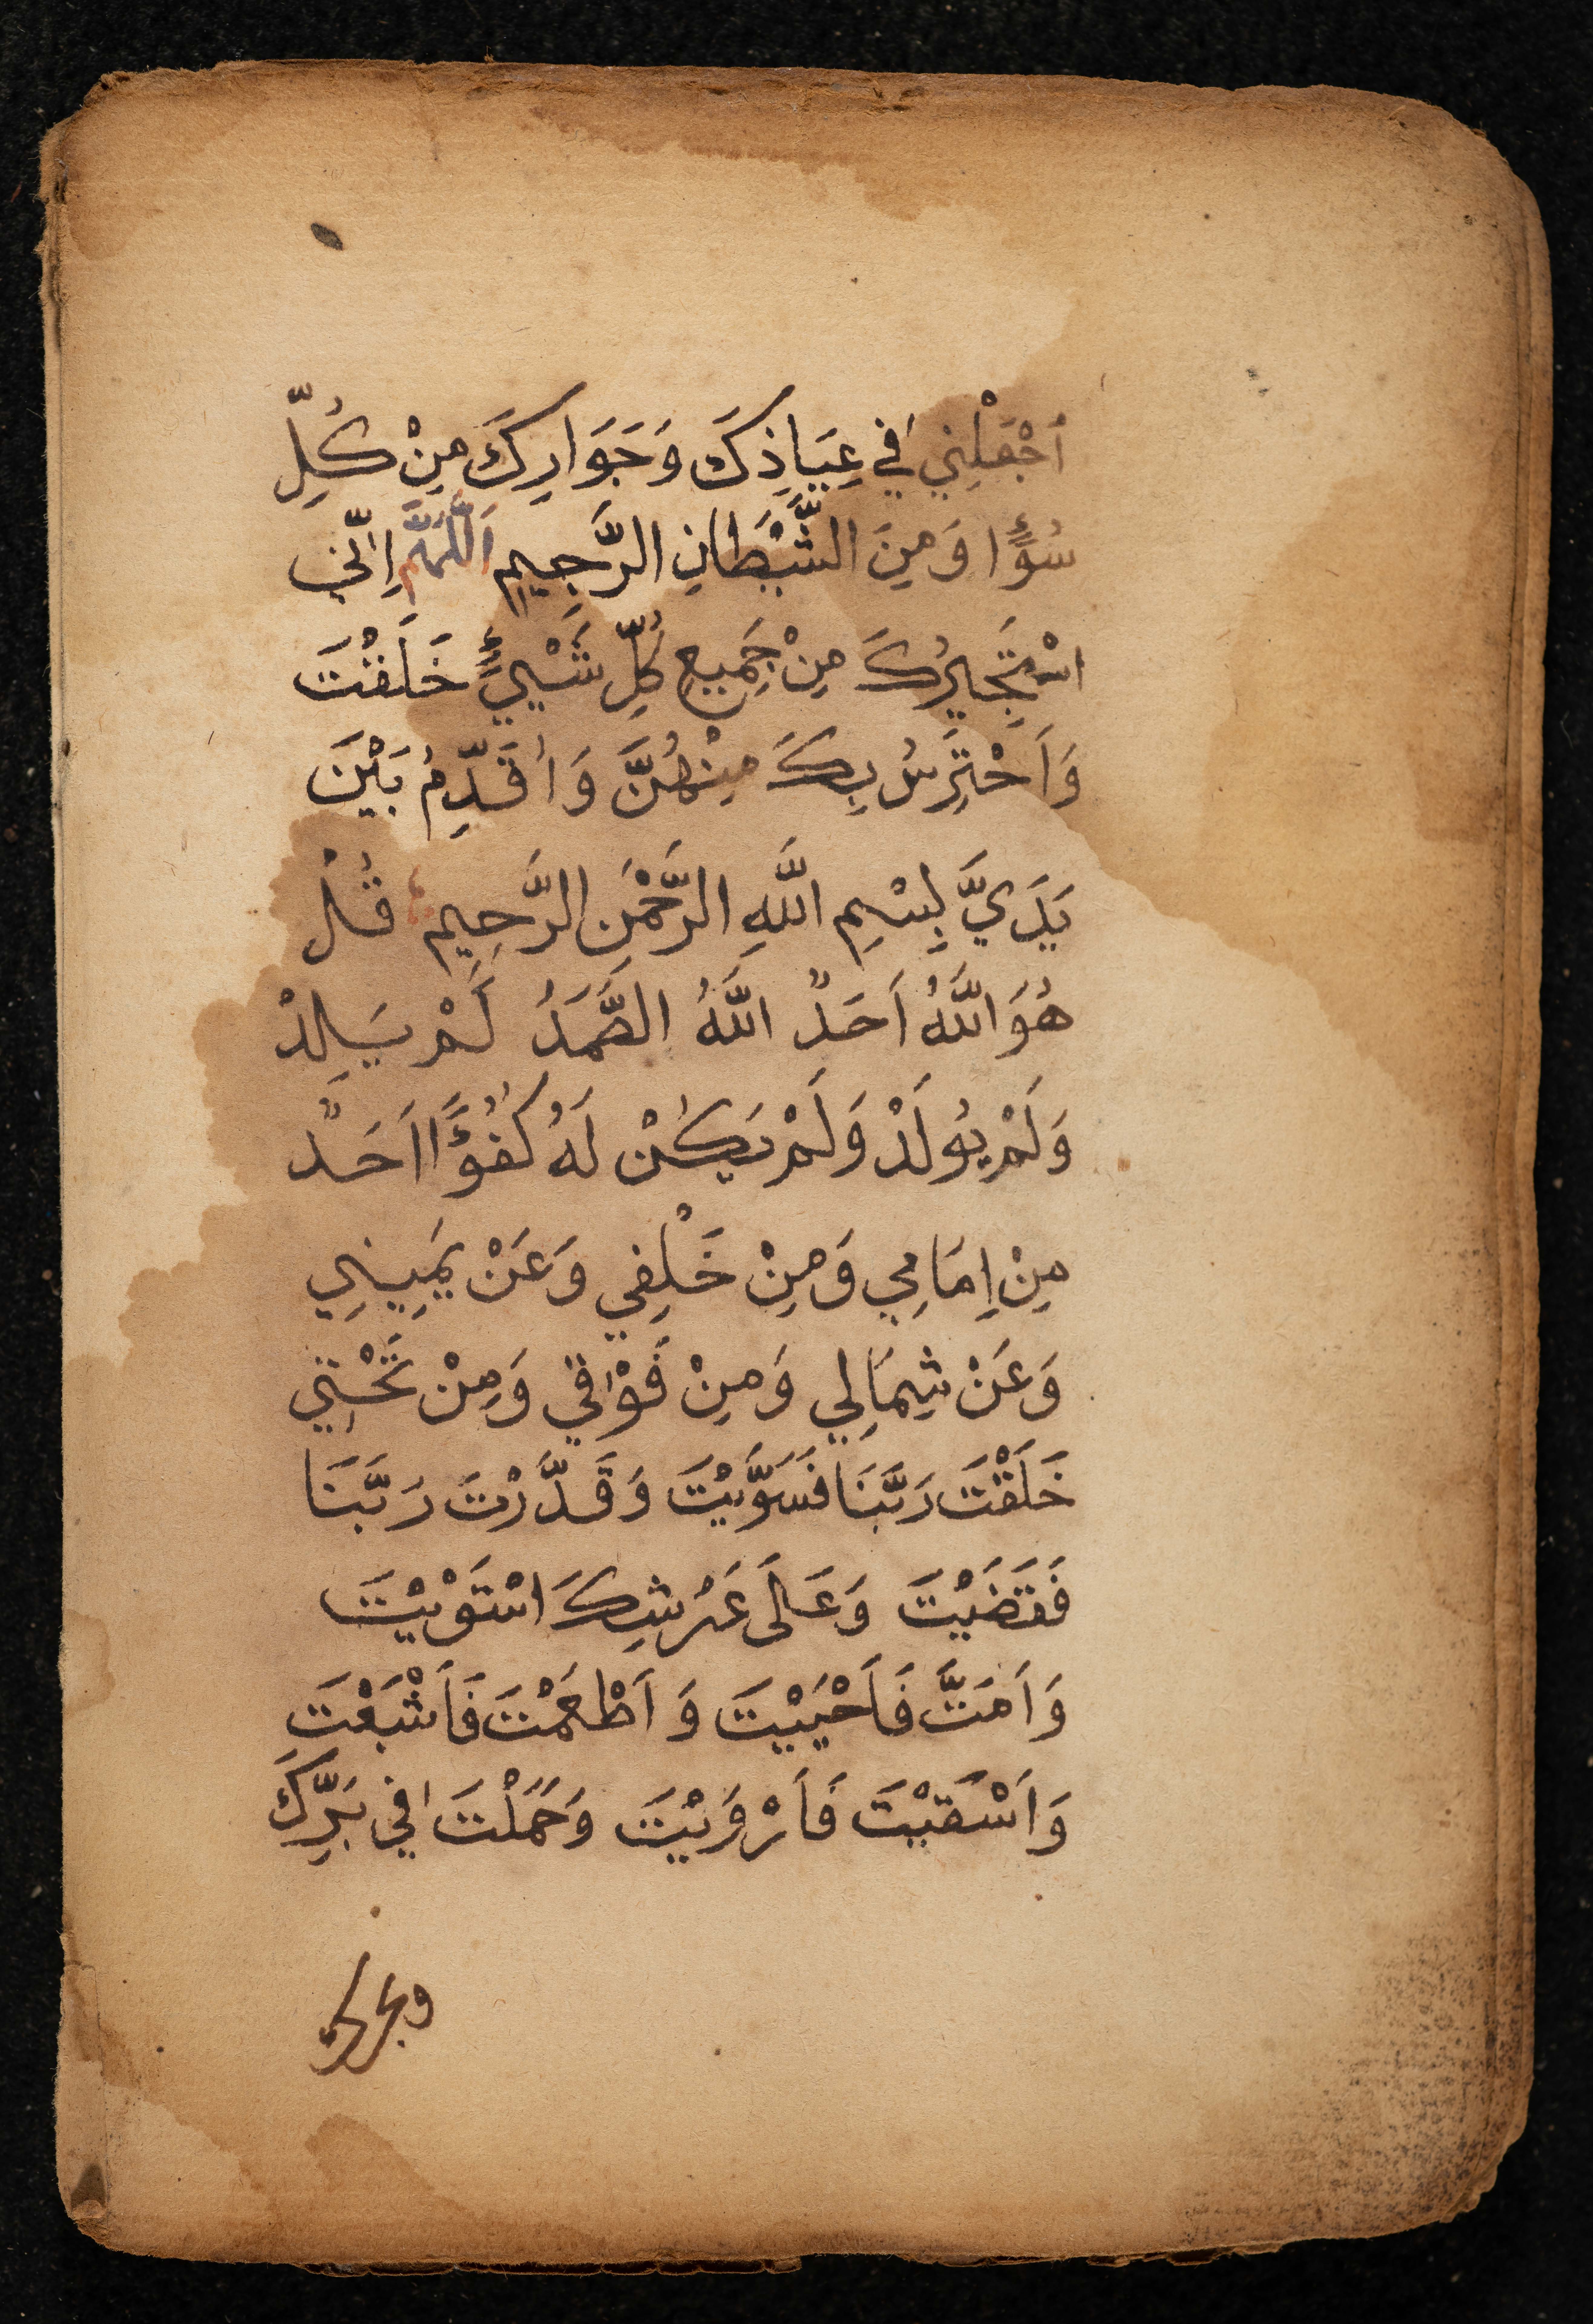 اَجْعَلْنِي فِي عِيَاذِكَ وَجَوَارِكَ مِنْ كُلِّ
سُوءًا وَمِنَ الشَّيْطَانِ الرَّجِيمِ اَللَّهُمَّ اِنِّي
اسْتَجِيرُكَ مِنْ جَمِيعِ كُلِّ شَيْءٍ خَلَقْتَ
وَاَحْتَرِسُ بِكَ مِنْهُنَّ وَاُقَدِّمُ بَيْنَ
يَدَيَّ بِسْمِ اللَّهِ الرَّحْمَنِ الرَّحِيمِ قُلْ
هُوَ اللَّهُ اَحَدٌ اللَّهُ الصَّمَدُ لَمْ يَلِدْ
وَلَمْ يُولَدْ وَلَمْ يَكُنْ لَهُ كُفُؤًا اَحَدٌ
مِنْ اِمَامِي وَمِنْ خَلْفِي وَعَنْ يَمِينِي
وَعَنْ شِمَالِي وَمِنْ فَوْقِي وَمِنْ تَحْتِي
خَلَقْتَ رَبَّنَا فَسَوَّيْتَ وَقَدَّرْتَ رَبَّنَا
فَقَضَيْتَ وَعَلَى عَرْشِكَ اسْتَوَيْتَ
وَاَمَتَّ فَاَحْيَيْتَ وَاَطْعَمْتَ فَاَشْبَعْتَ
وَاَسْقَيْتَ فَاَرْوَيْتَ وَحَمَلْتَ فِي بَرِّكَ
وبحرك